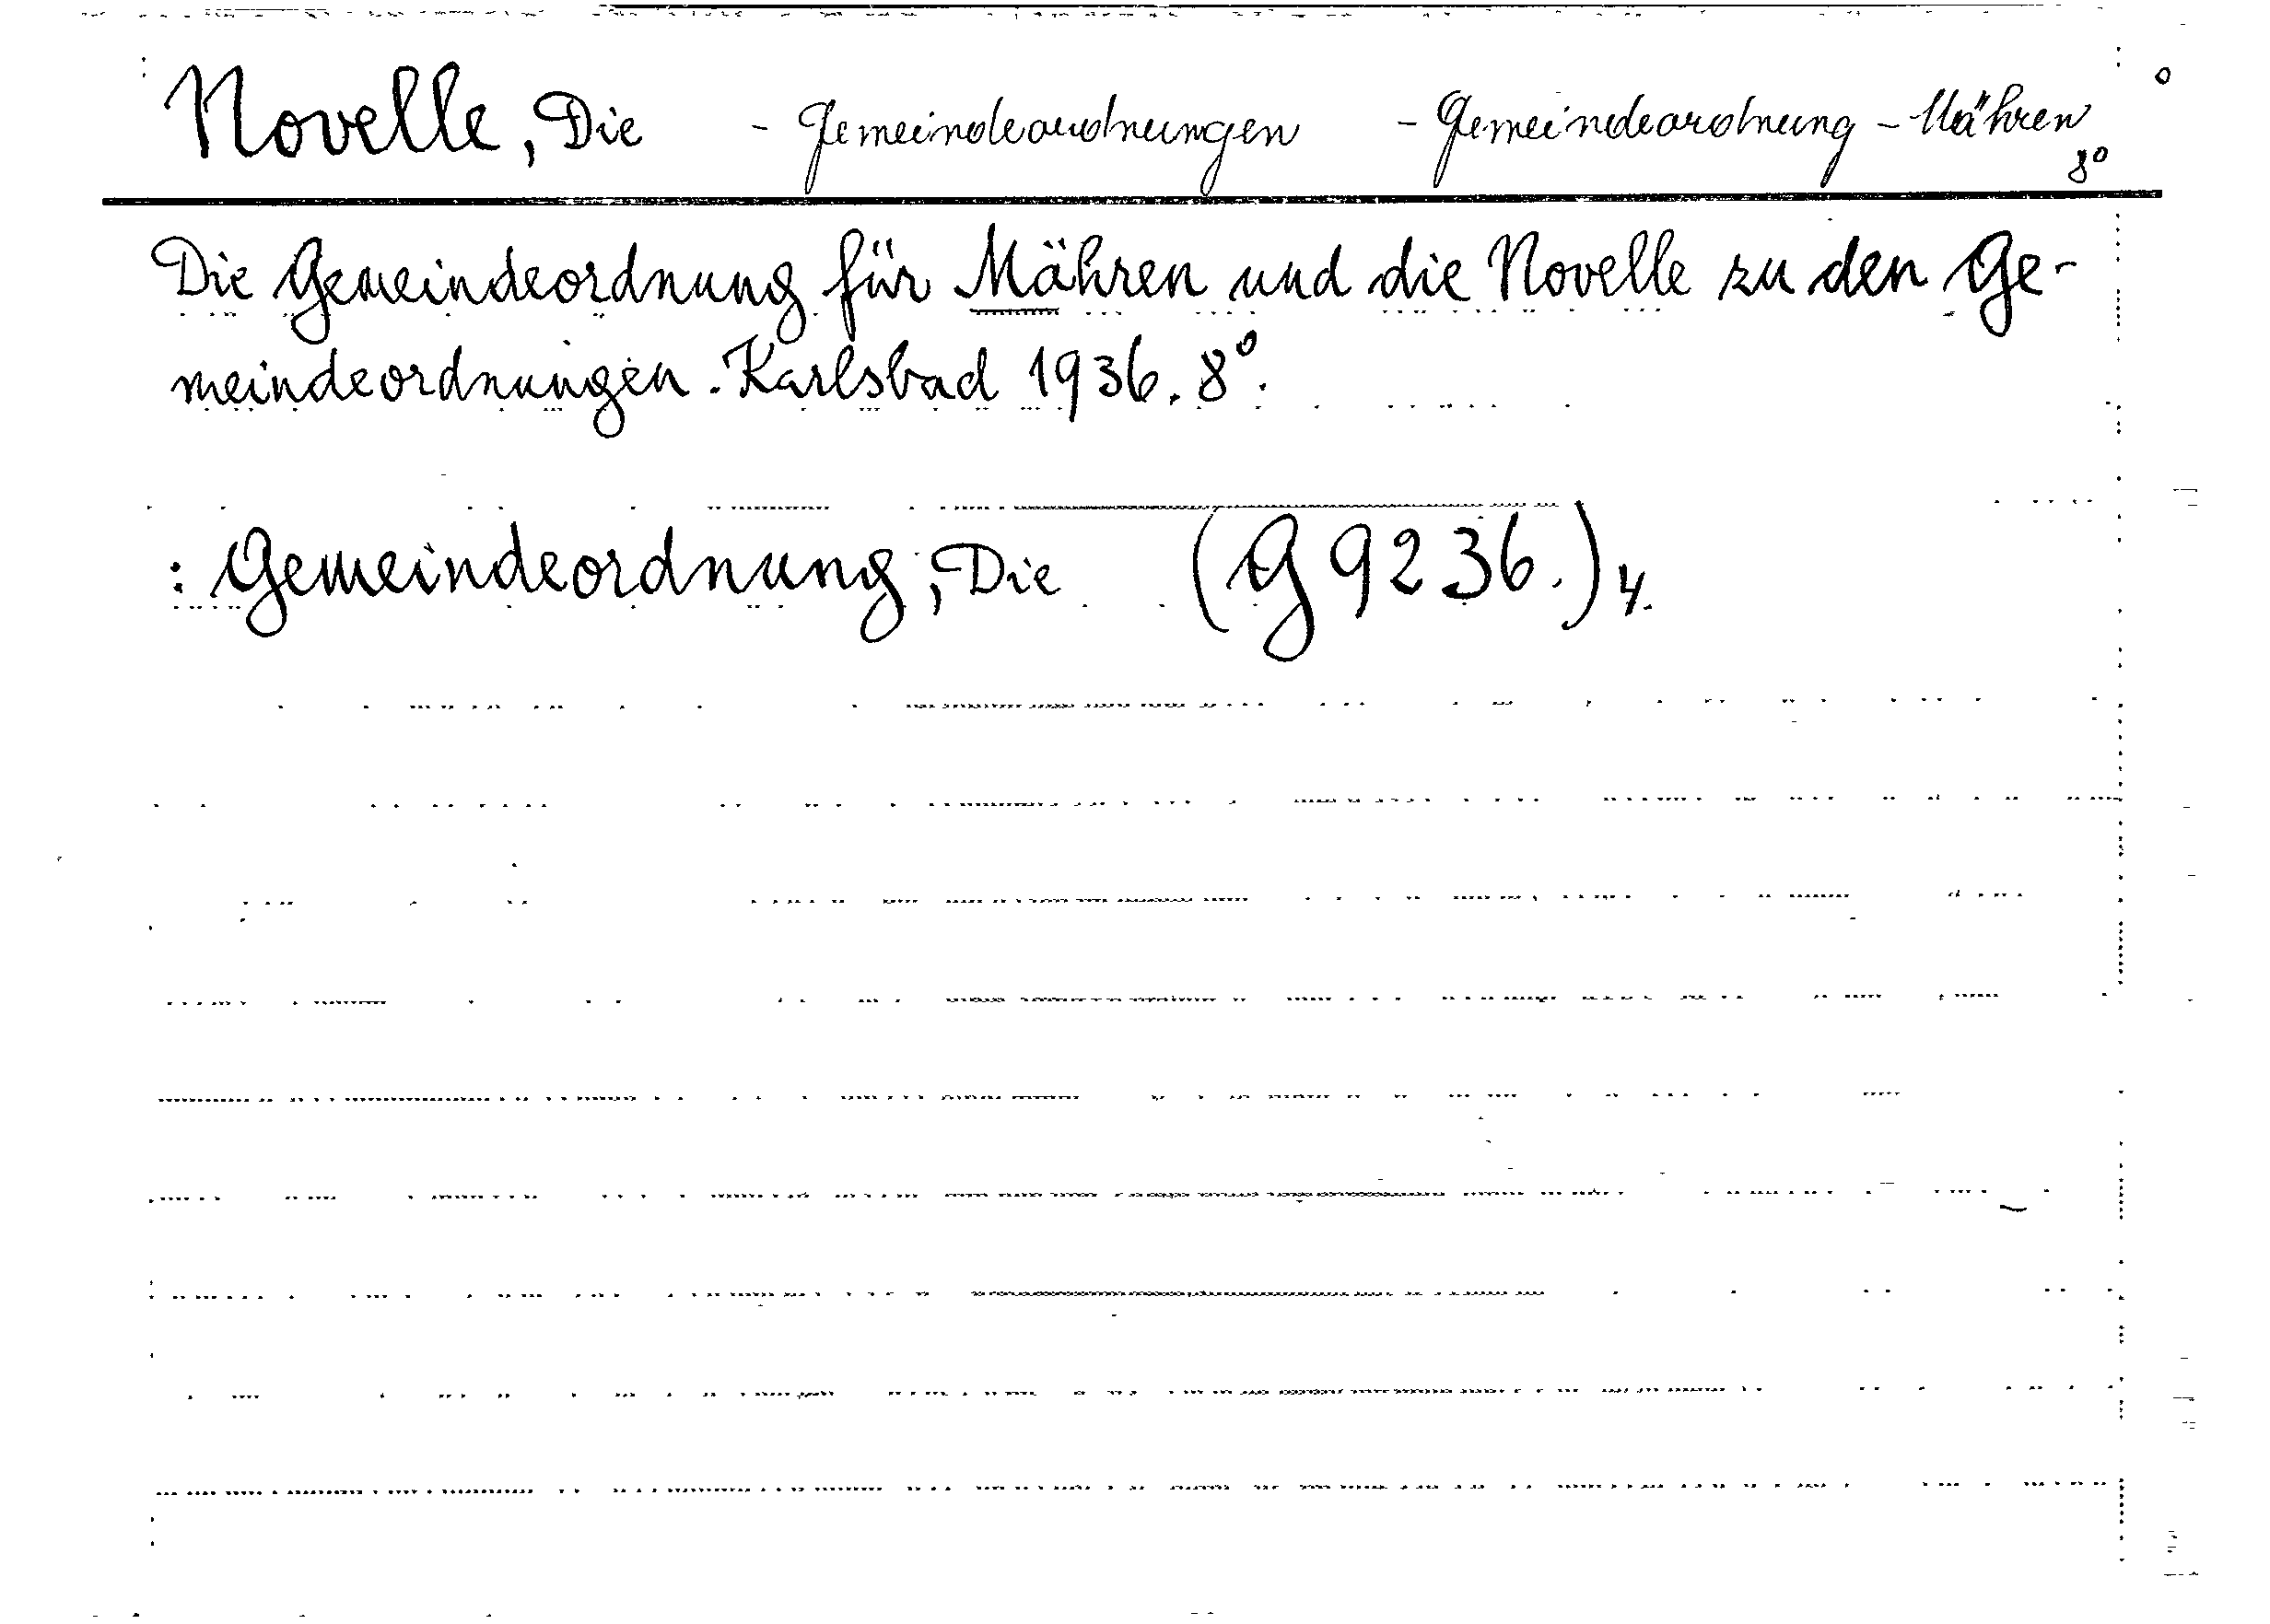 Novelle, Die - Gemeindeordnungen - Gemeindeordnung - Mähren
8°
Die Gemeindeordnung für Mähren und die Novelle zu den Ge-
meindeordnungen. Karlsbad 1936. 8°.
: Gemeindeordnung, Die (G 9236.) 4.